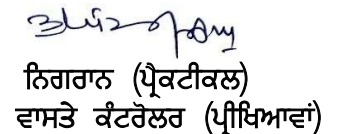 ਨਿਗਰਾਨ (ਪ੍ਰੈਕਟੀਕਲ)
ਵਾਸਤੇ ਕੰਟਰੋਲਰ (ਪ੍ਰੀਖਿਆਵਾਂ)